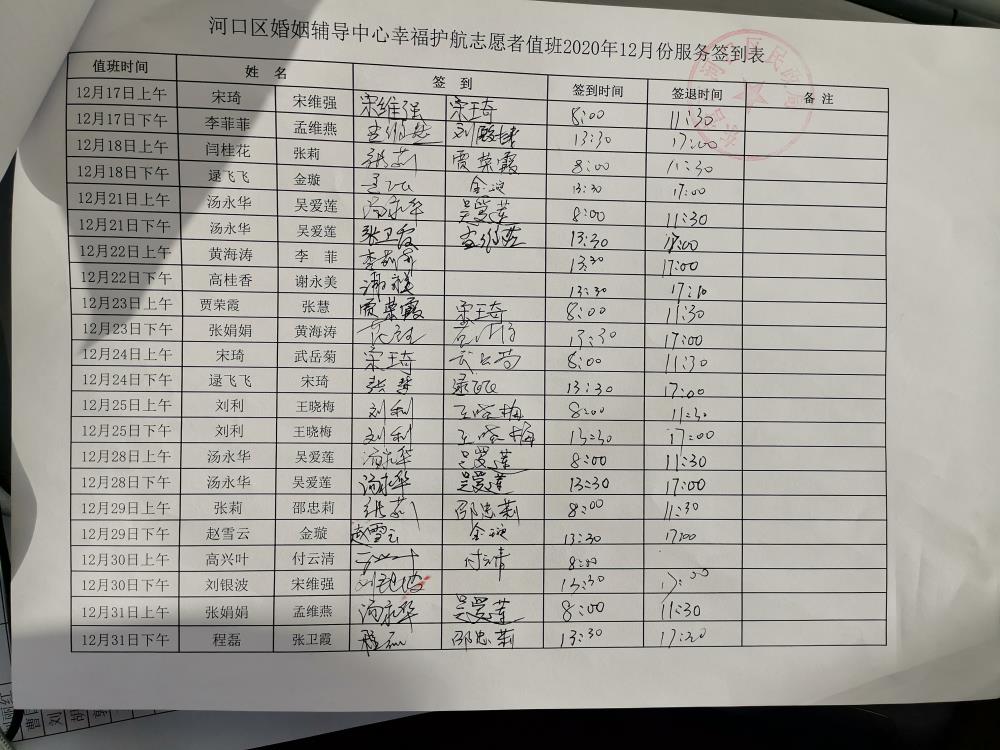 河口区婚姻辅导中心幸福护航志愿者值班2020年12月份服务签到表
值班时间 姓 名 签 到 签到时间 签退时间 备 注
12月17日上午 宋琦 宋维强 宋维强 宋琦 8:00 11:30
12月17日下午 李菲菲 孟维燕 孟维燕 13:30 17:00
12月18日上午 闫桂花 张莉 张莉 贾荣霞 8:00 11:30
12月18日下午 逯飞飞 金璇 金璇 13:30 17:00
12月21日上午 汤永华 吴爱莲 汤永华 吴爱莲 8:00 11:30
12月21日下午 汤永华 吴爱莲 张卫霞 孟维燕 13:30 17:00
12月22日上午 黄海涛 李 菲 13:30 17:00
12月22日下午 高桂香 谢永美 13:30 17:10
12月23日上午 贾荣霞 张慧 贾荣霞 宋琦 8:00 11:30
12月23日下午 张娟娟 黄海涛 13:30 17:00
12月24日上午 宋琦 武岳菊 宋琦 8:00 11:30
12月24日下午 逯飞飞 宋琦 张慧 逯飞飞 13:30 17:00
12月25日上午 刘利 王晓梅 刘利 王晓梅 8:00 11:30
12月25日下午 刘利 王晓梅 刘利 王晓梅 13:30 17:00
12月28日上午 汤永华 吴爱莲 汤永华 吴爱莲 8:00 11:30
12月28日下午 汤永华 吴爱莲 汤永华 吴爱莲 13:30 17:00
12月29日上午 张莉 邵忠莉 张莉 邵忠莉 8:00 11:30
12月29日下午 赵雪云 金璇 赵雪云 金璇 13:30 17:00
12月30日上午 高兴叶 付云清 付云清 8:00
12月30日下午 刘银波 宋维强 刘银波 13:30 17:00
12月31日上午 张娟娟 孟维燕 汤永华 吴爱莲 8:00 11:30
12月31日下午 程磊 张卫霞 程磊 邵忠莉 13:30 17:20